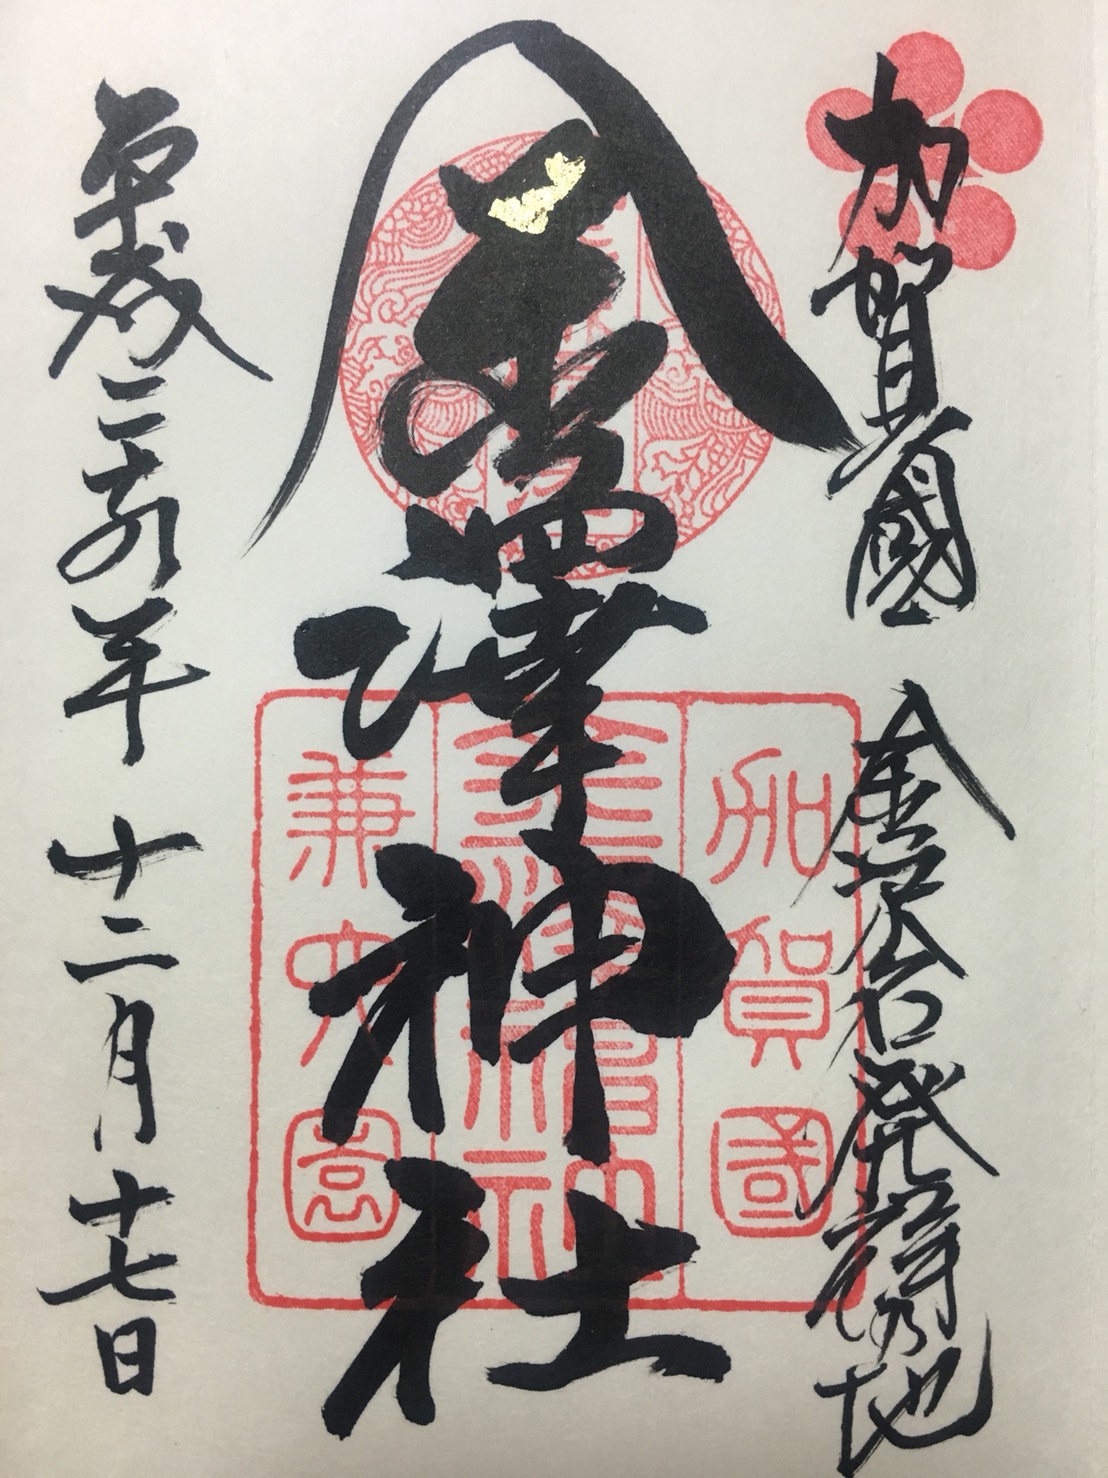 加賀國 金沢名発祥の地
金澤神社
平成二十九年 十二月 十七日
加賀國
金澤神社
兼六園